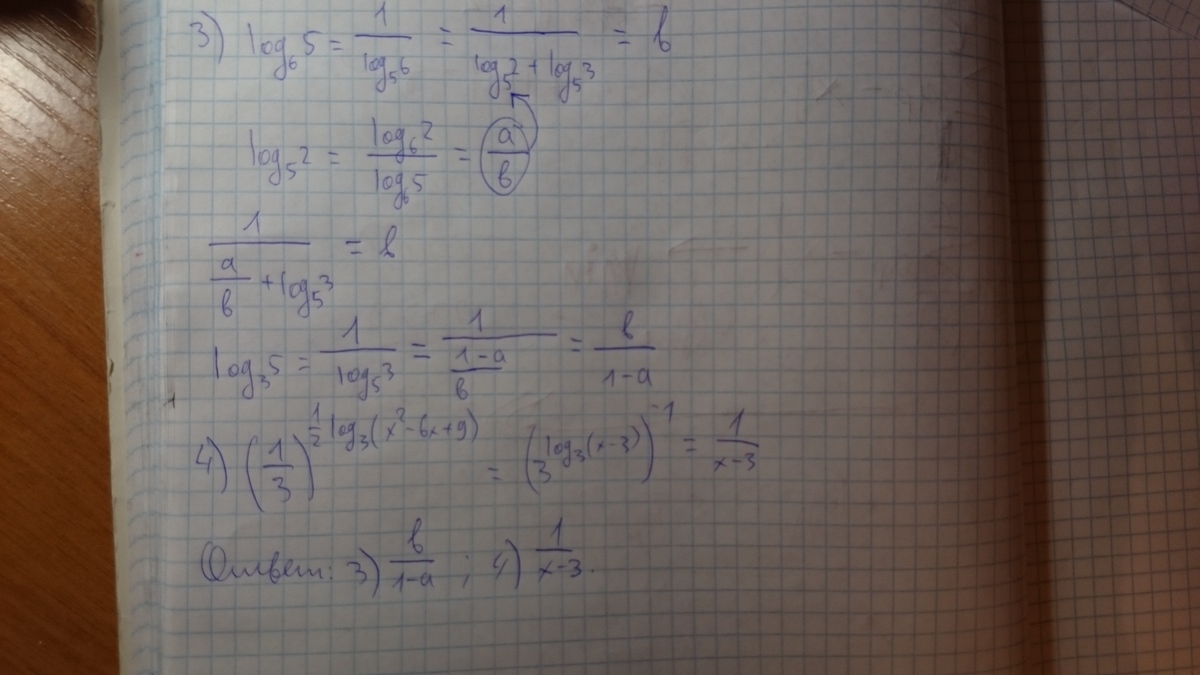 3) log₆5 = 1/log₅6 = 1/(log₅2 + log₅3) = b
log₅2 = log₆2/log₆5 = a/b
1/(a/b + log₅3) = b
log₃5 = 1/log₅3 = 1/((1-a)/b) = b/(1-a)
4) (1/3)^(1/2 log₃(x²-6x+9)) = (3^(log₃(x-3)))^(-1) = 1/(x-3)
Ответ: 3) b/(1-a) ; 4) 1/(x-3).